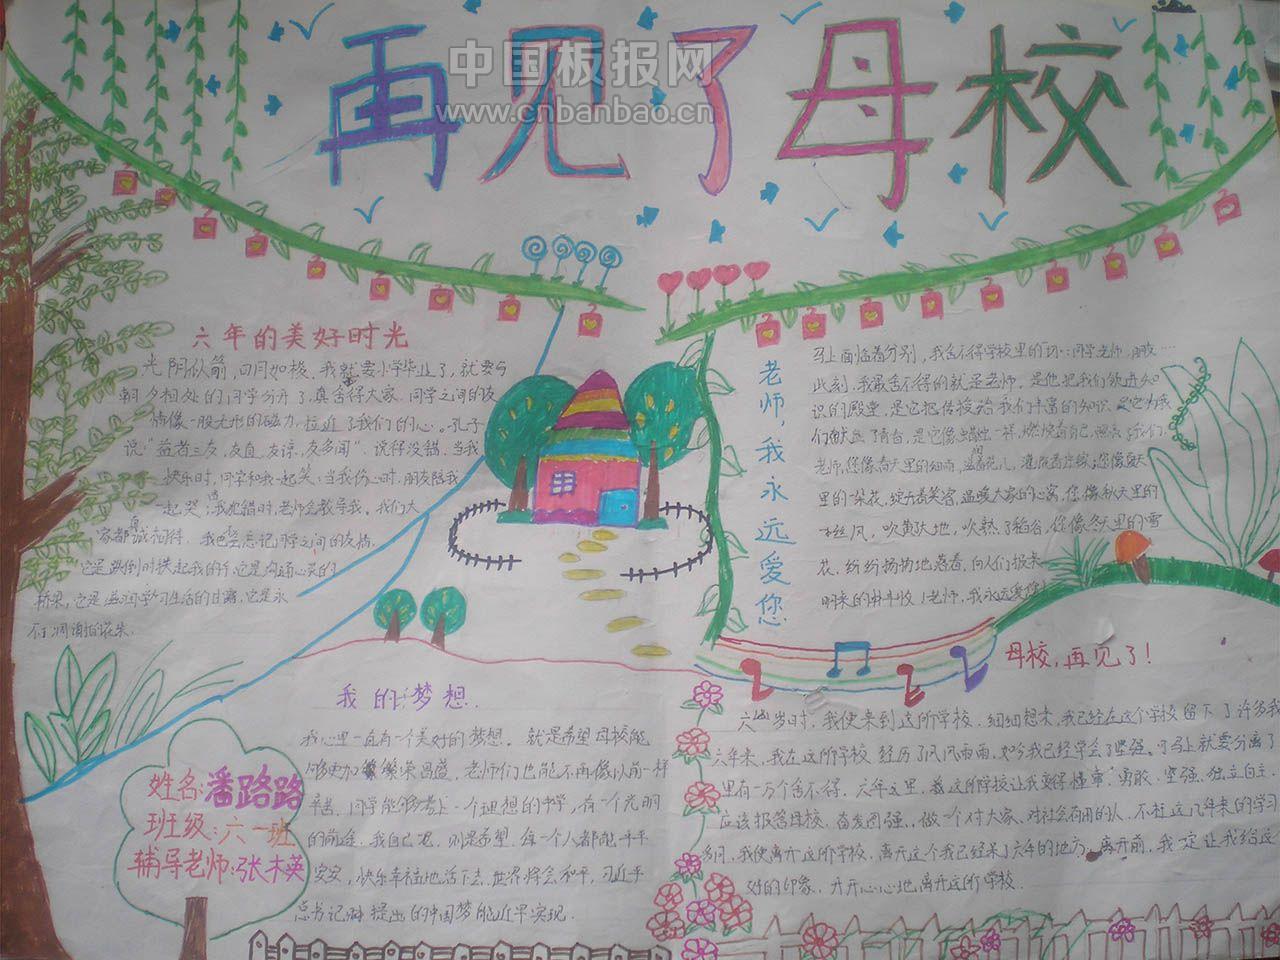 再见了母校
中国板报网
www.cnbanbao.cn
六年的美好时光
光阴似箭，日月如梭，我就要小学毕业了，就要与
朝夕相处的同学分开了，真舍得大家，同学之间的友
情像一股无形的磁力，拉近了我们的心。孔子
说“益者三友，友直，友谅，友多闻”说得没错，当我
快乐时，同学和我一起笑；当我伤心时，朋友陪我
一起哭；当我犯错时，老师会教导我。我们大
家都真诚相待，我也会忘记同学之间的友情，
它是跌倒时扶起我的手，它是沟通心灵的
桥梁，它是滋润学习生活的甘露，它是永
不凋谢的花朵。
老师，我永远爱您
马上面临着分别，我舍不得学校里的一切：同学老师，朋友…
此刻，我最舍不得的就是老师，是他把我们领进知
识的殿堂，是它把传授给我们丰富的知识，是它为我
们献出了青春，是它像蜡烛一样，燃烧着自己，照亮了我们，
老师，您像春天里的细雨，滋润着花儿，灌溉着庄稼；您像夏天
里的一朵花，绽开着笑容，温暖大家的心窝，您像秋天里的
一丝风，吹黄大地，吹熟了稻谷，您像冬天里的雪
花，纷纷扬扬地落着，向人们报来
明年的好丰收！老师，我永远爱您！
我的梦想
我心里一直有一个美好的梦想。就是希望母校能
够更加繁荣昌盛，老师们也能不再像以前一样
辛苦，同学能够考上一个理想的中学，有一个光明
的前途，我自己呢，则是希望，每一个人都能平平
安安，快乐幸福地活下去，世界将会和平，习近平
总书记所提出的中国梦能近早实现。
母校，再见了！
六岁时，我便来到这所学校，细细想来，我已经在这个学校留下了许多我
六年来，我在这所学校经历了风风雨雨，如今我已经学会了坚强。可马上就要分离了
里有一万个舍不得，六年这里，是这所学校让我变得懂事，勇敢，坚强，独立自主，
应该报答母校，奋发图强，做一个对大家，对社会有用的人，不枉这几年来的学习
多月，我便离开这所学校，离开这个我已经来了六年的地方，离开前，我一定让我给这
好的印象，开开心心地离开这所学校。
姓名：潘路路
班级：六一班
辅导老师：张木英